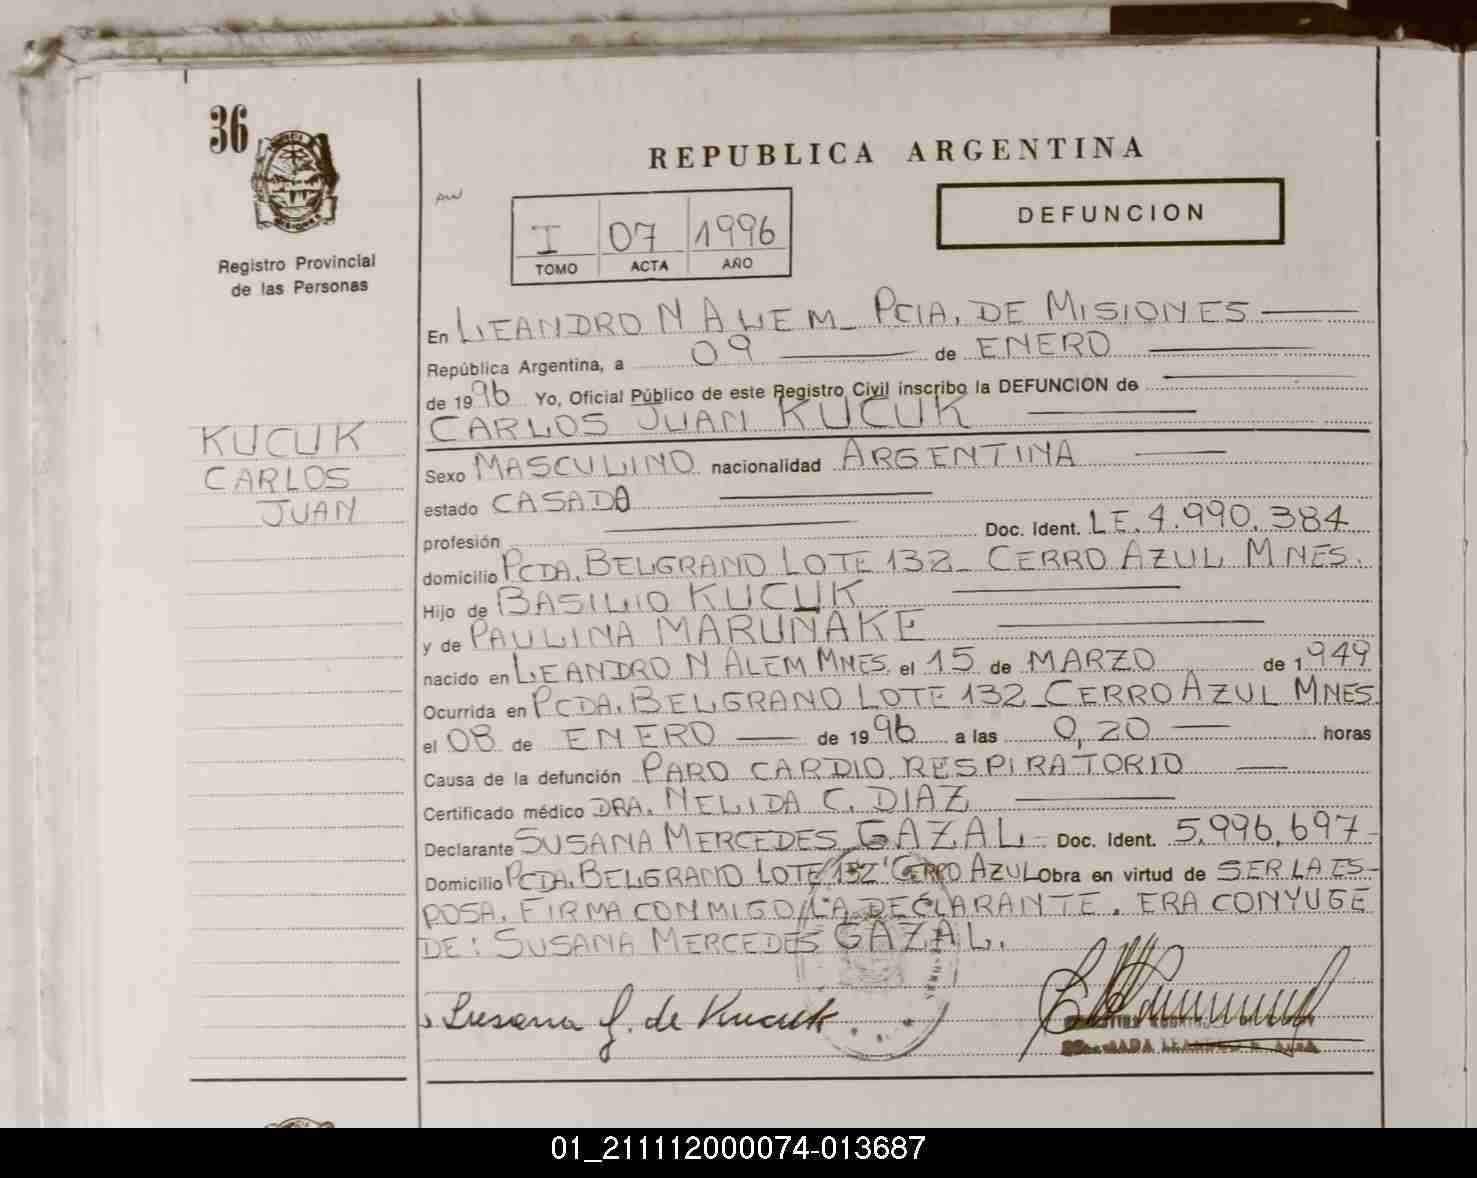 36
REPUBLICA ARGENTINA
DEFUNCION
I 07 1996
TOMO ACTA AÑO
Registro Provincial
de las Personas
En LEANDRO N ALEM_ PCIA. DE MISIONES
República Argentina, a 09 de ENERO
de 1996 Yo, Oficial Público de este Registro Civil inscribo la DEFUNCION de
CARLOS JUAN KUCUK
KUCUK
CARLOS
JUAN
Sexo MASCULINO nacionalidad ARGENTINA
estado CASADO
profesión Doc. Ident. LE. 4.990.384
domicilio PCDA. BELGRANO LOTE 132_ CERRO AZUL MNES.
Hijo de BASILIO KUCUK
y de PAULINA MARUÑAKE
nacido en LEANDRO N ALEM MNES. el 15 de MARZO de 1949
Ocurrida en PCDA. BELGRANO LOTE 132_ CERRO AZUL MNES
el 08 de ENERO de 1996 a las 0,20 horas
Causa de la defunción PARO CARDIO RESPIRATORIO
Certificado médico DRA. NELIDA C. DIAZ
Declarante SUSANA MERCEDES GAZAL Doc. Ident. 5.996.697
Domicilio PCDA. BELGRANO LOTE 132 CERRO AZUL Obra en virtud de SER LA ES-
POSA. FIRMA CONMIGO LA DECLARANTE. ERA CONYUGE
DE: SUSANA MERCEDES GAZAL.
Susana G. de Kucuk
01_211112000074-013687